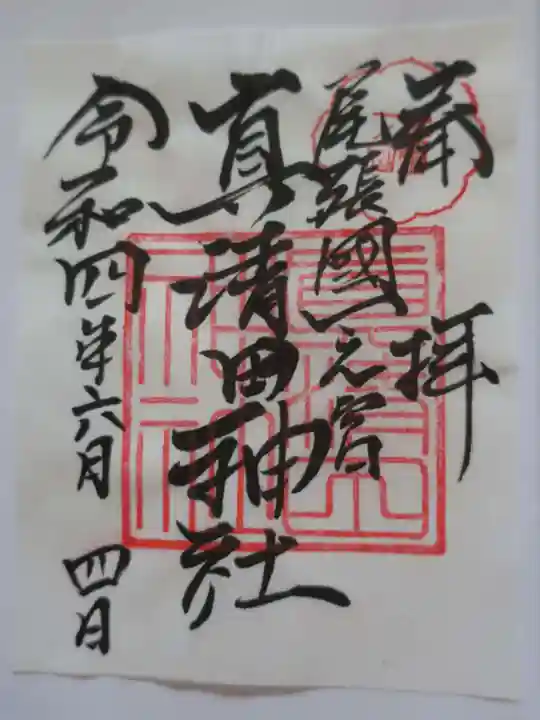 奉拝
尾張國一之宮
真清田神社
令和四年六月四日